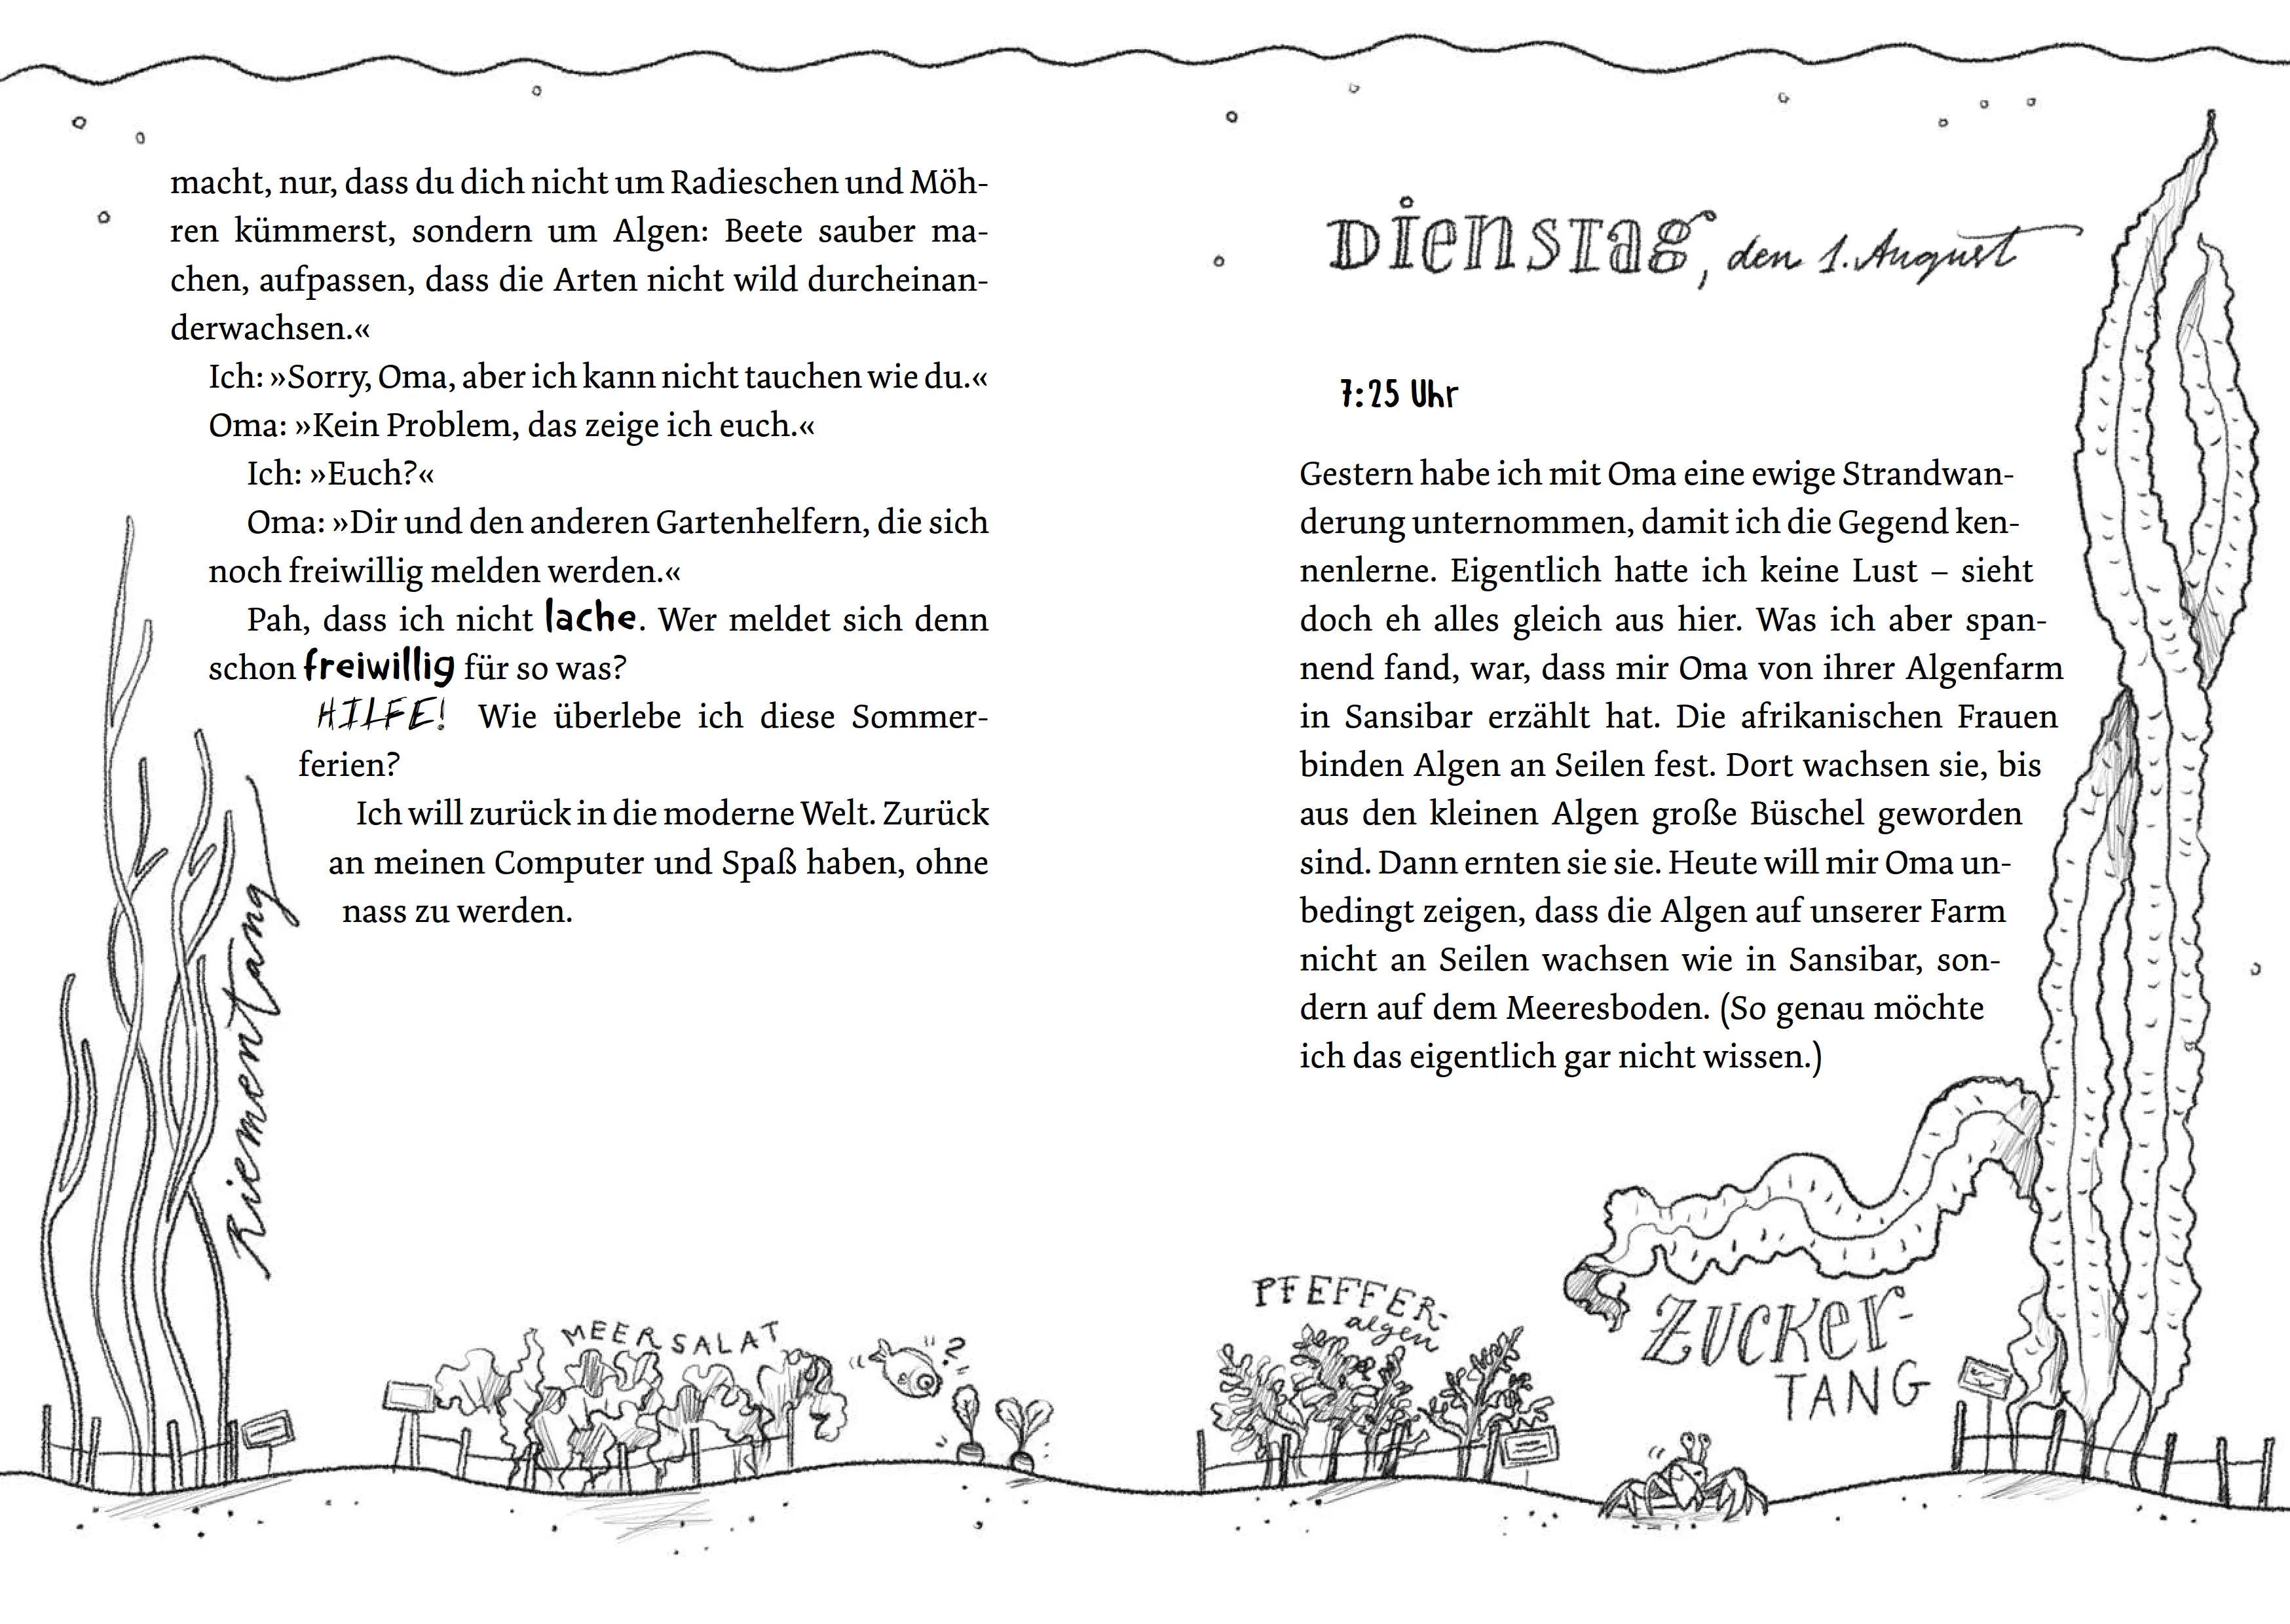 macht, nur, dass du dich nicht um Radieschen und Möh-
ren kümmerst, sondern um Algen: Beete sauber ma-
chen, aufpassen, dass die Arten nicht wild durcheinan-
derwachsen.«
Ich: »Sorry, Oma, aber ich kann nicht tauchen wie du.«
Oma: »Kein Problem, das zeige ich euch.«
Ich: »Euch?«
Oma: »Dir und den anderen Gartenhelfern, die sich
noch freiwillig melden werden.«
Pah, dass ich nicht lache. Wer meldet sich denn
schon freiwillig für so was?
HILFE! Wie überlebe ich diese Sommer-
ferien?
Ich will zurück in die moderne Welt. Zurück
an meinen Computer und Spaß haben, ohne
nass zu werden.
Riementang
MEERSALAT
?
Dienstag, den 1. August
7:25 Uhr
Gestern habe ich mit Oma eine ewige Strandwan-
derung unternommen, damit ich die Gegend ken-
nenlerne. Eigentlich hatte ich keine Lust – sieht
doch eh alles gleich aus hier. Was ich aber span-
nend fand, war, dass mir Oma von ihrer Algenfarm
in Sansibar erzählt hat. Die afrikanischen Frauen
binden Algen an Seilen fest. Dort wachsen sie, bis
aus den kleinen Algen große Büschel geworden
sind. Dann ernten sie sie. Heute will mir Oma un-
bedingt zeigen, dass die Algen auf unserer Farm
nicht an Seilen wachsen wie in Sansibar, son-
dern auf dem Meeresboden. (So genau möchte
ich das eigentlich gar nicht wissen.)
PFEFFER-
algen
ZUCKer-
TANG